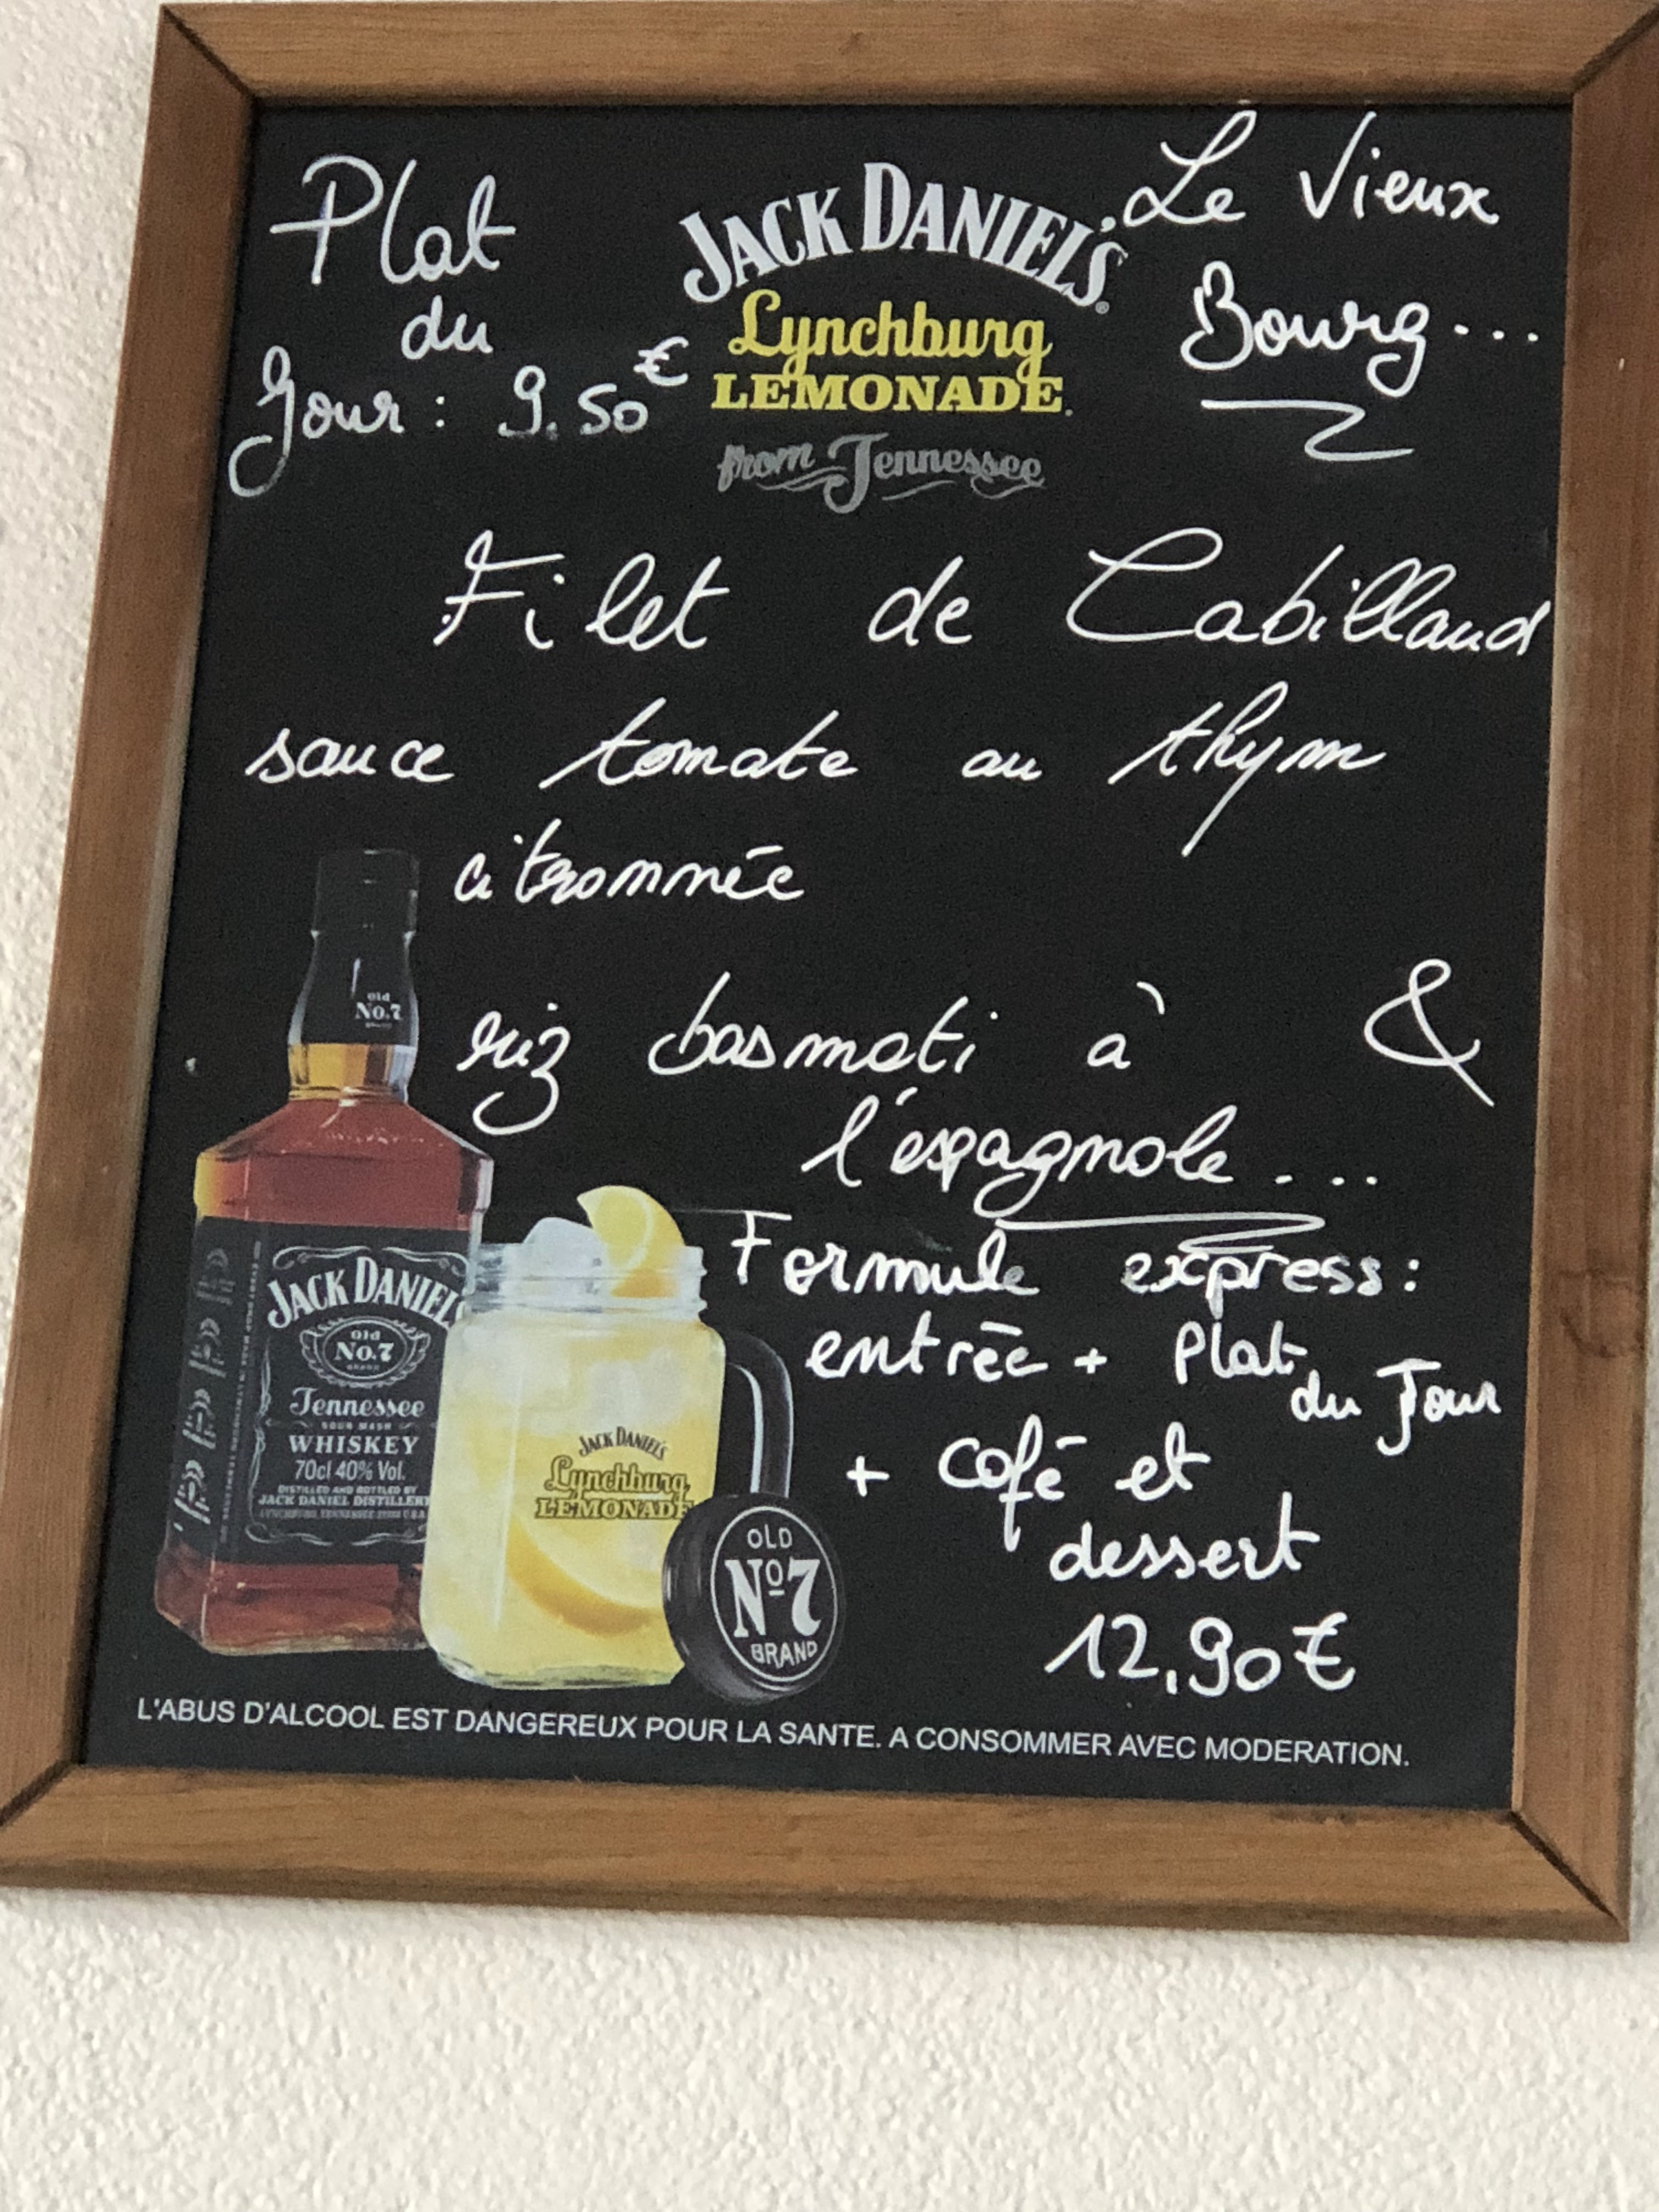 Plat
du
Jour : 9.50€
JACK DANIEL'S®
Lynchburg
LEMONADE.
from Tennessee
Le Vieux
Bourg...
Filet de Cabillaud
sauce tomate au thym
citronnée
&
riz basmati à
l'espagnole....
Formule express :
entrée + Plat
du Jour
+ café et
dessert
12,90€
Old
No.7
BRAND
JACK DANIEL'S
Old
No.7
BRAND
Tennessee
SOUR MASH
WHISKEY
70cl 40% Vol.
DISTILLED AND BOTTLED BY
JACK DANIEL DISTILLERY
JACK DANIEL'S
Lynchburg
LEMONADE
OLD
Nº7
BRAND
L'ABUS D'ALCOOL EST DANGEREUX POUR LA SANTE. A CONSOMMER AVEC MODERATION.